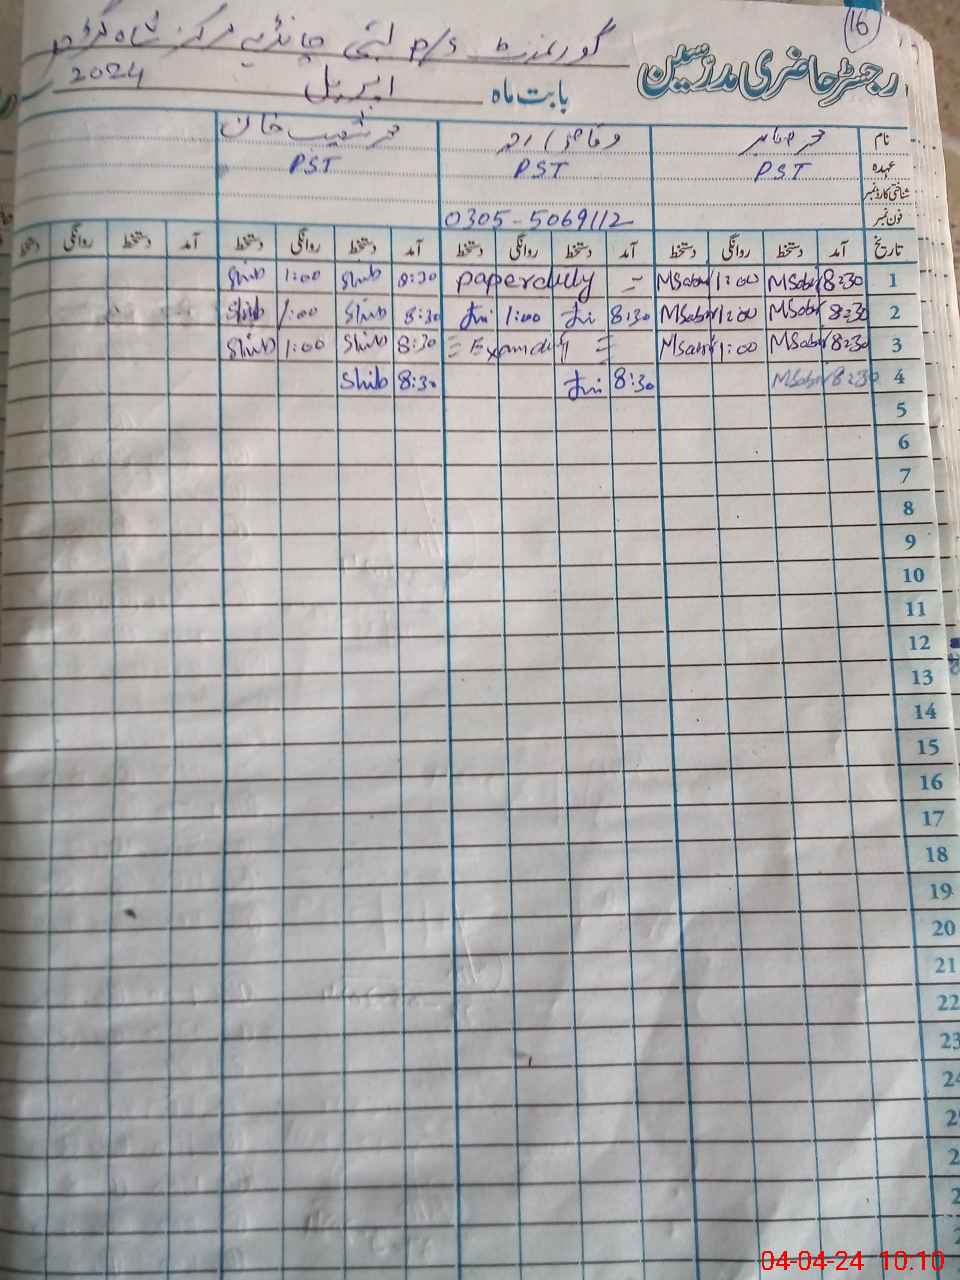 16
گورنمنٹ P/S بستی چانڈیہ مرکز شاہ گڑھ
رجسٹر حاضری مدرسین
بابت ماہ اپریل 2024
نام محمد صابر وقاص احمد محمد شعیب خان
عہدہ PST PST PST
شناختی کارڈ نمبر
فون نمبر 0305-5069112
تاریخ آمد دستخط روانگی دستخط آمد دستخط روانگی دستخط آمد دستخط روانگی دستخط آمد دستخط روانگی دستخط
1 8:30 MSabir 1:00 MSabir = paper duly 8:30 Shib 1:00 Shib
2 8:30 MSabir 1:00 MSabir 8:30 1:00 8:30 Shib 1:00 Shib
3 8:30 MSabir 1:00 MSabir = Exam duty = 8:30 Shib 1:00 Shib
4 8:30 MSabir 8:30 8:30 Shib
5
6
7
8
9
10
11
12
13
14
15
16
17
18
19
20
21
22
23
24
04-04-24 10.10